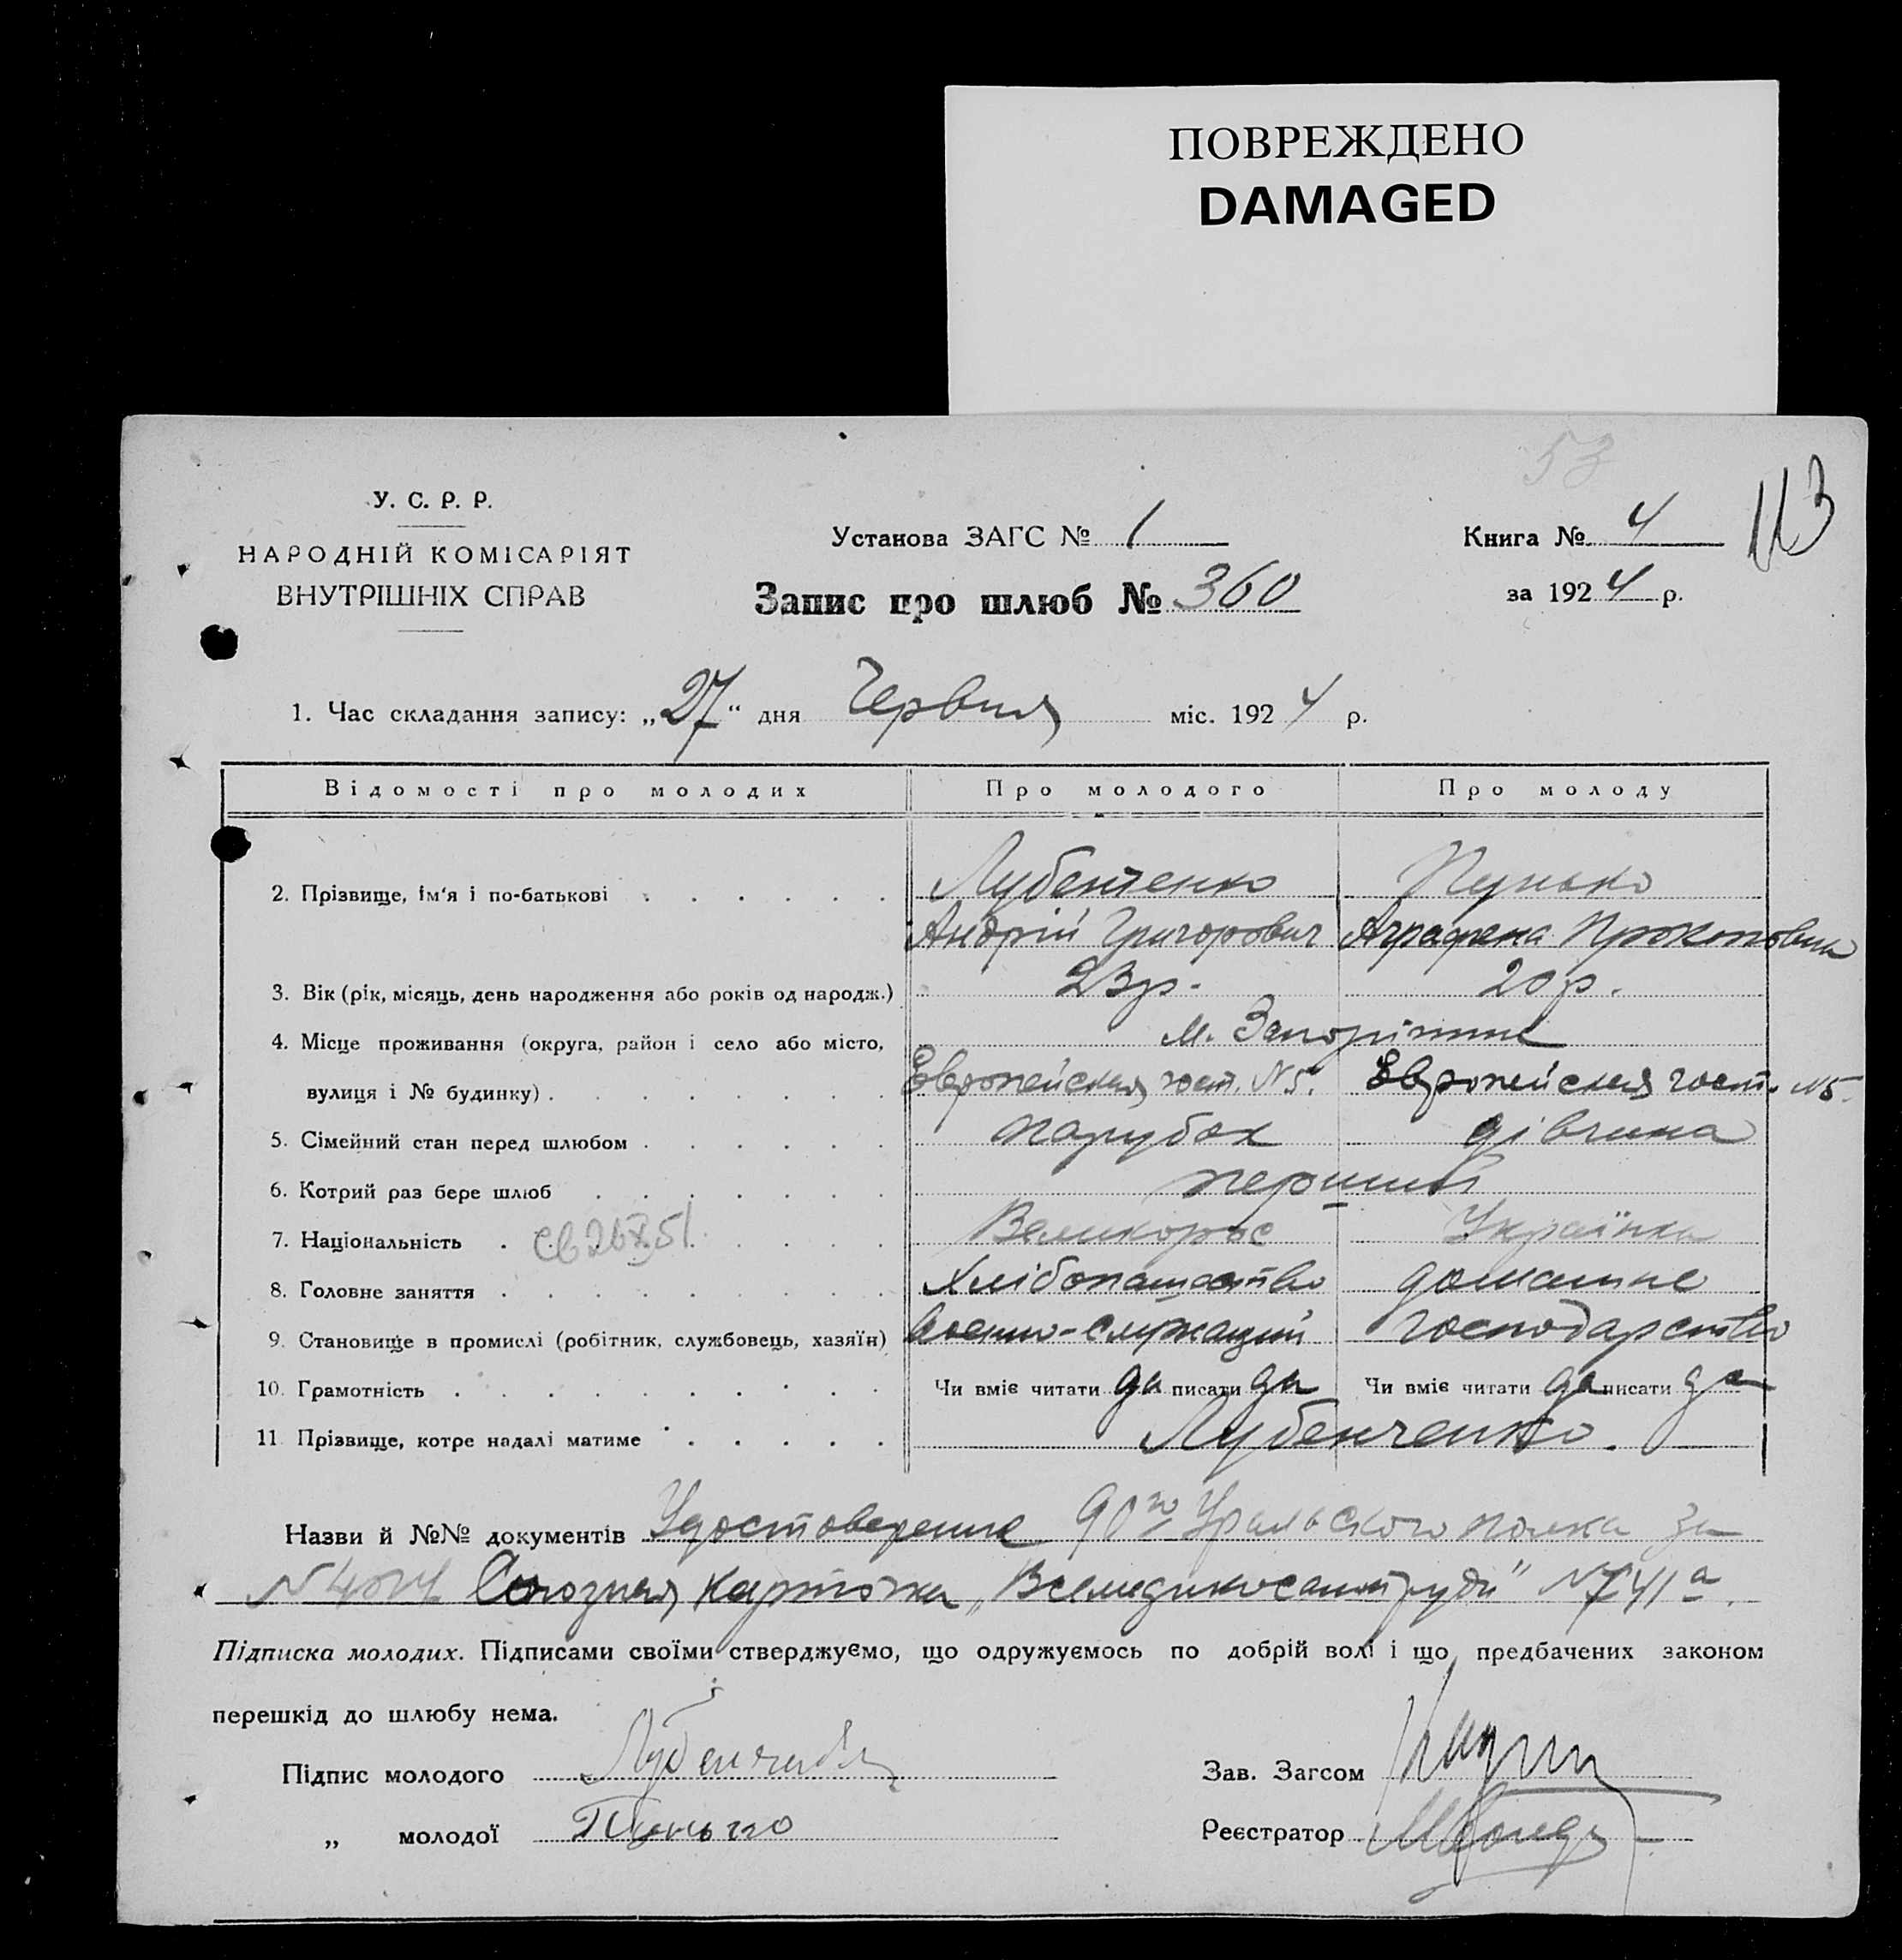 ПОВРЕЖДЕНО
DAMAGED
53
113
У. С. Р. Р.
НАРОДНІЙ КОМІСАРІЯТ
ВНУТРІШНІХ СПРАВ
Установа ЗАГС № 1
Запис про шлюб № 360
Книга № 4
за 1924 р.
1. Час складання запису: „27“ дня Червня міс. 1924 р.
Відомості про молодих Про молодого Про молоду
2. Прізвище, ім'я і по-батькові Лубенченко Пунько
Андрій Григорович Аграфена Прокоповна
3. Вік (рік, місяць, день народження або років од народж.) 23 р. 20 р.
4. Місце проживання (округа, район і село або місто, м. Запоріжжє
вулиця і № будинку) Європейская гост. №5. Европейская гост. №5.
5. Сімейний стан перед шлюбом парубок дівчина
6. Котрий раз бере шлюб перший
7. Національність Великорос Українка
8. Головне заняття Хлібопашество домашнє
9. Становище в промислі (робітник, службовець, хазяїн) военно-служащий господарство
10. Грамотність Чи вміє читати да писати да Чи вміє читати да писати да
11. Прізвище, котре надалі матиме Лубенченко.
Назви й №№ документів Удостоверение 90го Уральского полка за
№ Союзная карточка „Всемедикосантруди" № 741а.
Підписка молодих. Підписами своїми стверджуємо, що одружуємось по добрій волі і що предбачених законом
перешкід до шлюбу нема.
Підпис молодого
„ молодої Пунько
Зав. Загсом
Реєстратор